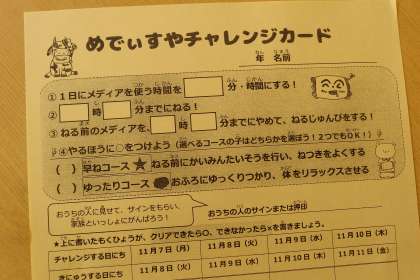 めでぃすやチャレンジカード
年 名前
①1日にメディアを使う時間を 分・時間にする！
② 時 分までにねる！
③ねる前のメディアを、 時 分までにやめて、ねるじゅんびをする！
④やるほうに○をつけよう（選べるコースの子はどちらかを選ぼう！2つでもOK！）
（ ）早ねコース ★ ねる前にかいみんたいそうを行い、ねつきをよくする
（ ）ゆったりコース おふろにゆっくりつかり、体をリラックスさせる
おうちの人に見せて、サインをもらい、
家族といっしょにがんばろう！
おうちの人のサインまたは押印
★上に書いたもくひょうが、クリアできたら○、できなかったら×を書きましょう。
チャレンジする日にち 11月7日（月） 11月8日（火） 11月9日（水） 11月10日（木）
きにゅうする日にち 11月8日（火） 11月9日（水） 11月10日（木） 11月11日（金）